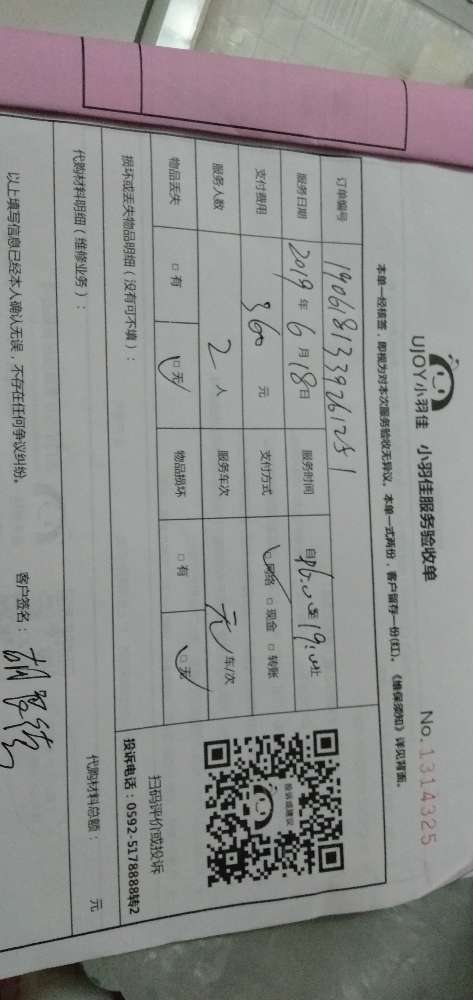 UJOY小羽佳 小羽佳服务验收单
No. 1314325
本单一经核签，即视为对本次服务验收无异议。本单一式两份，客户留存一份(红)。《维保须知》详见背面。
订单编号 190618133926125 1
服务日期 2019 年 6 月 18 日 服务时间 自 16:00 至 19:00 止
支付费用 360 元 支付方式 □网络 □现金 □转账
服务人数 2 人 服务车次 无 车/次
物品丢失 □有 □无 物品损坏 □有 □无
投诉或建议
扫码评价或投诉
投诉电话：0592-5178888转2
损坏或丢失物品明细（没有可不填）：
代购材料明细（维修业务）：
代购材料总额： 元
以上填写信息已经本人确认无误，不存在任何争议纠纷。
客户签名：